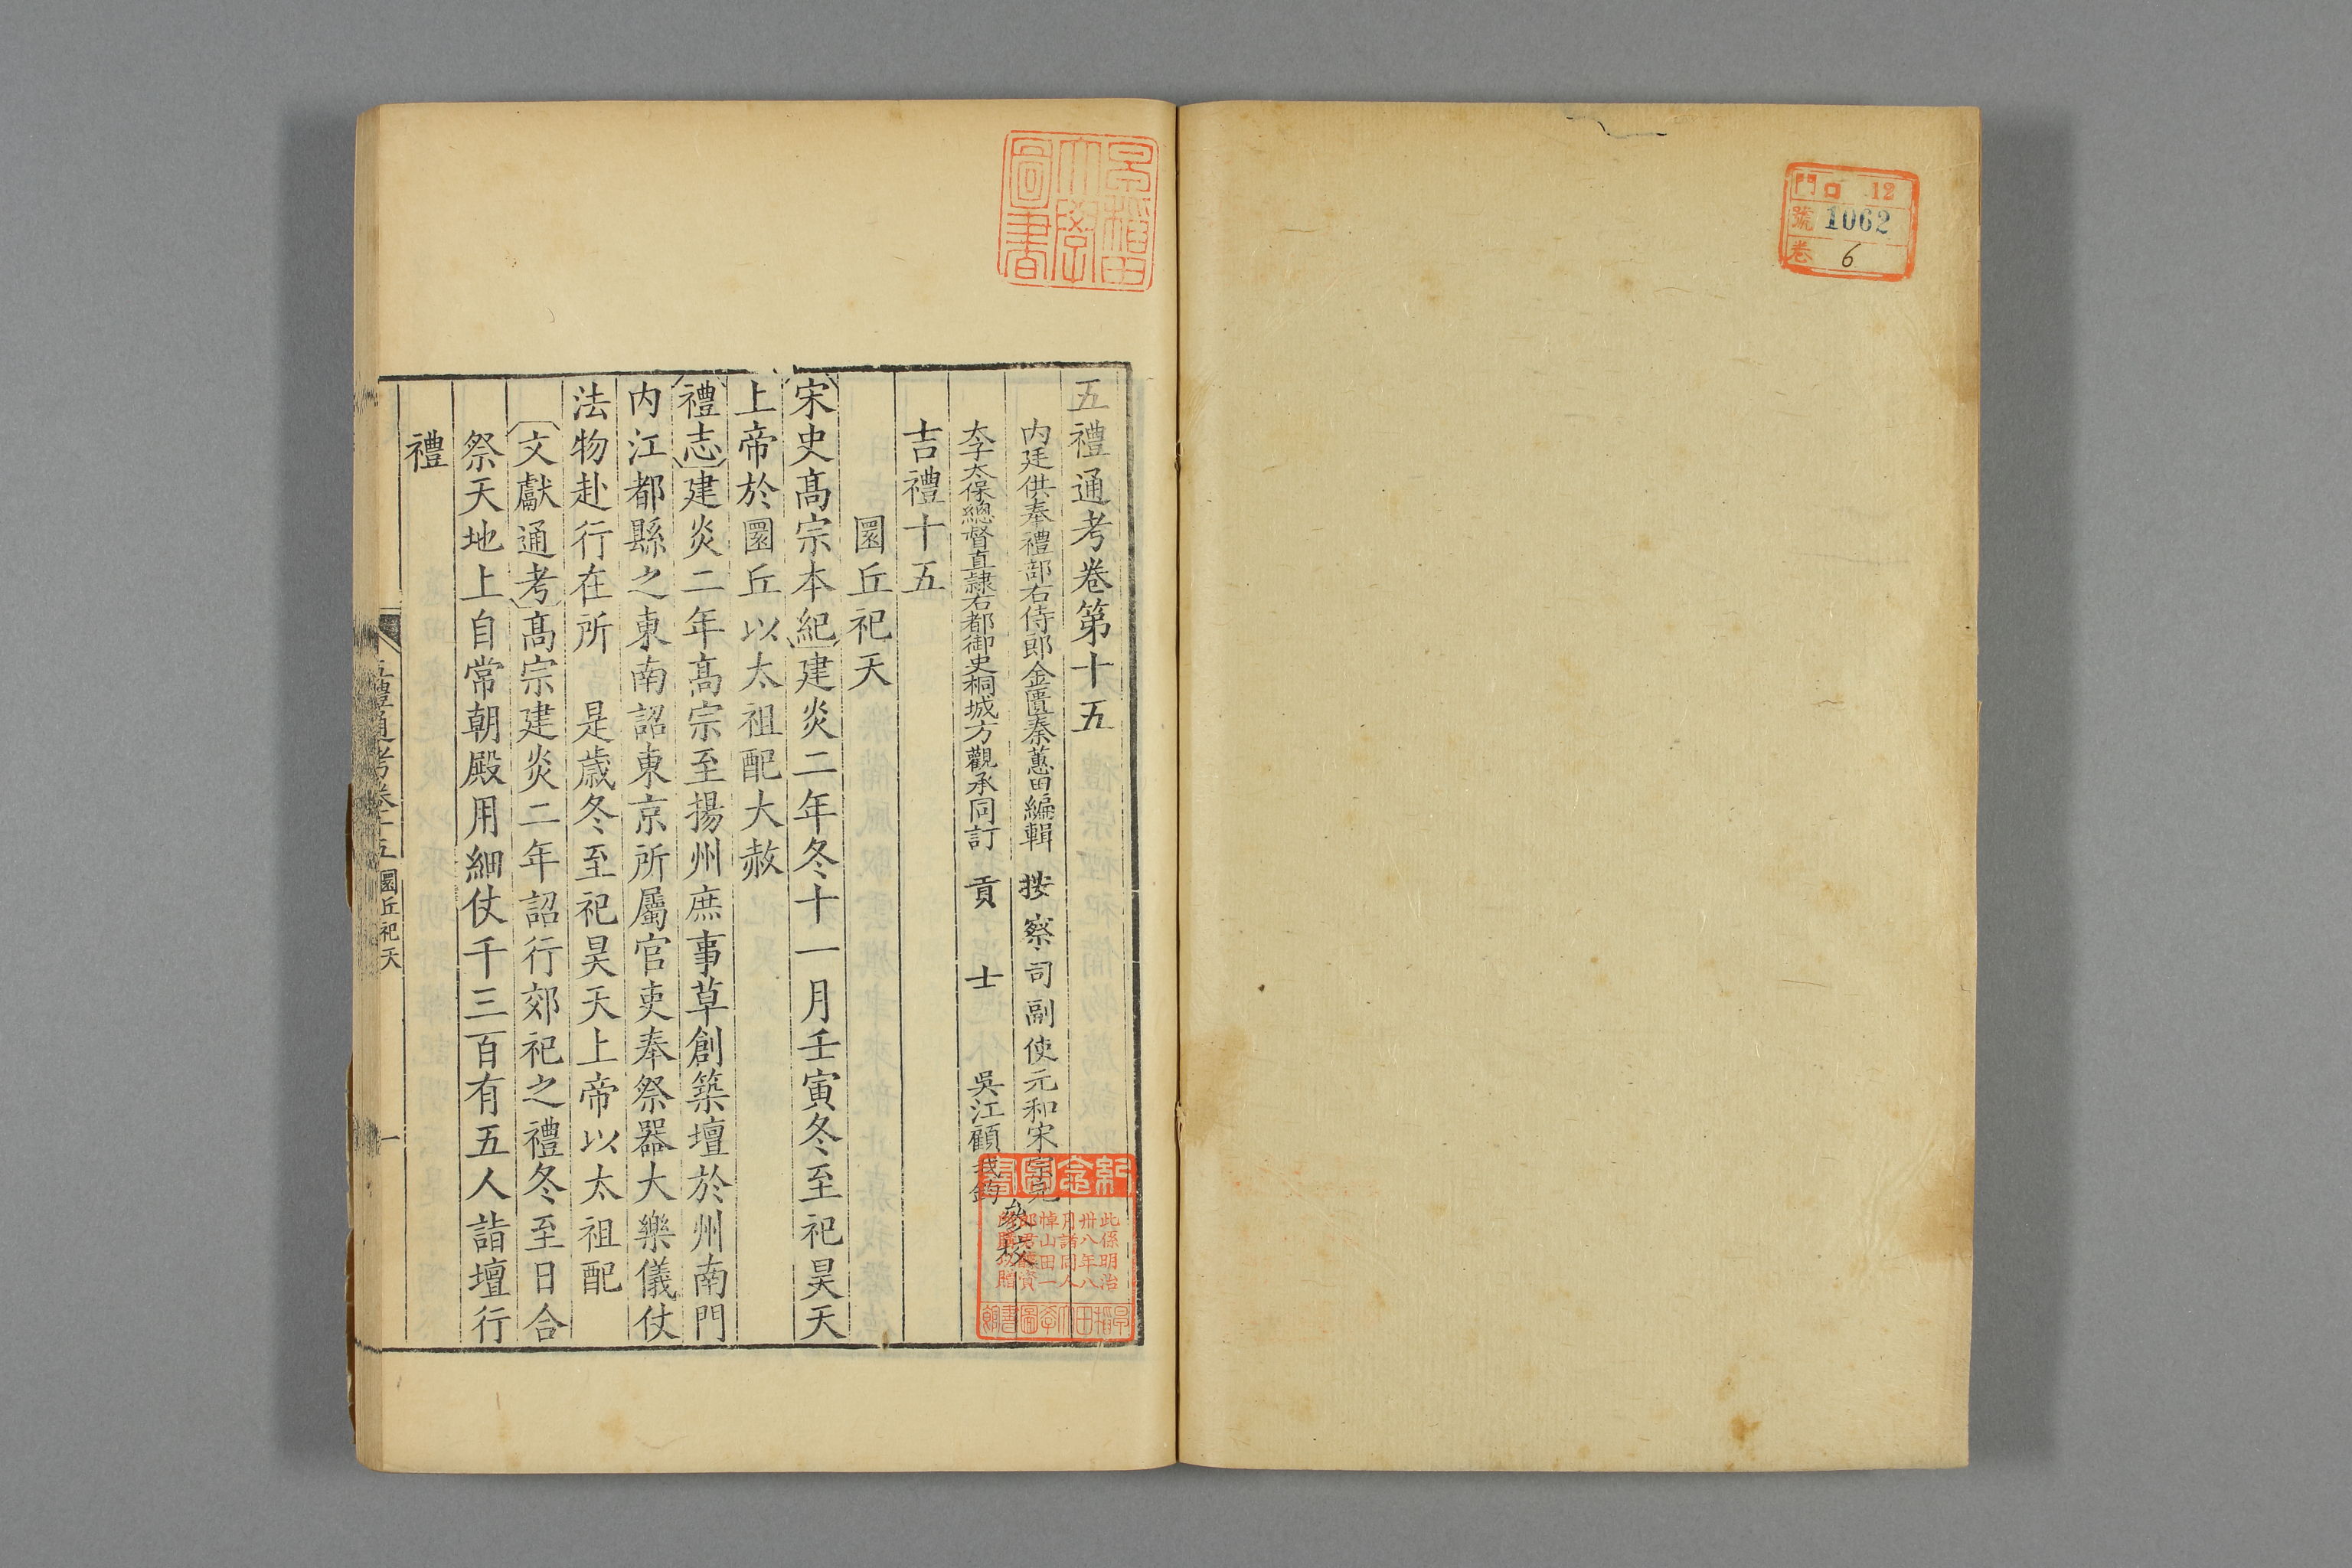 門 口 12
號 1062
卷 6
早稲田大學圖書
五禮通考卷第十五
内廷供奉禮部右侍郎金匱秦蕙田編輯 按察司副使元和宋宗元
太子太保總督直隸右都御史桐城方觀承同訂 貢士吳江顧我鈞
參校
吉禮十五
圜丘祀天
宋史髙宗本紀建炎二年冬十一月壬寅冬至祀昊天
上帝於圜丘以太祖配大赦
禮志建炎二年髙宗至揚州庶事草創築壇於州南門
内江都縣之東南詔東京所屬官吏奉祭器大樂儀仗
法物赴行在所 是歲冬至祀昊天上帝以太祖配
文獻通考髙宗建炎二年詔行郊祀之禮冬至日合
祭天地上自常朝殿用細仗千三百有五人詣壇行
禮
五禮通考卷十五 圜丘祀天 一
紀念圖書
此係明治
卅八年八
月諸同人
悼山田一
郎君醵資
所購以贈
早稲田大學圖書館